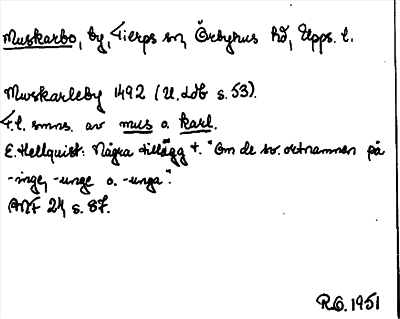 Muskarbo, by, Tierps sn, Örbyhus hd, Upps. l.
Muskarleby 1492 (U. ldb s. 53).
T.l. smns. av mus o. karl.
E. Hellquist: Några tillägg t. "Om de sv. ortnamnen på
-inge, -unge o. -unga".
ANF 24, s. 87.
R.O. 1951